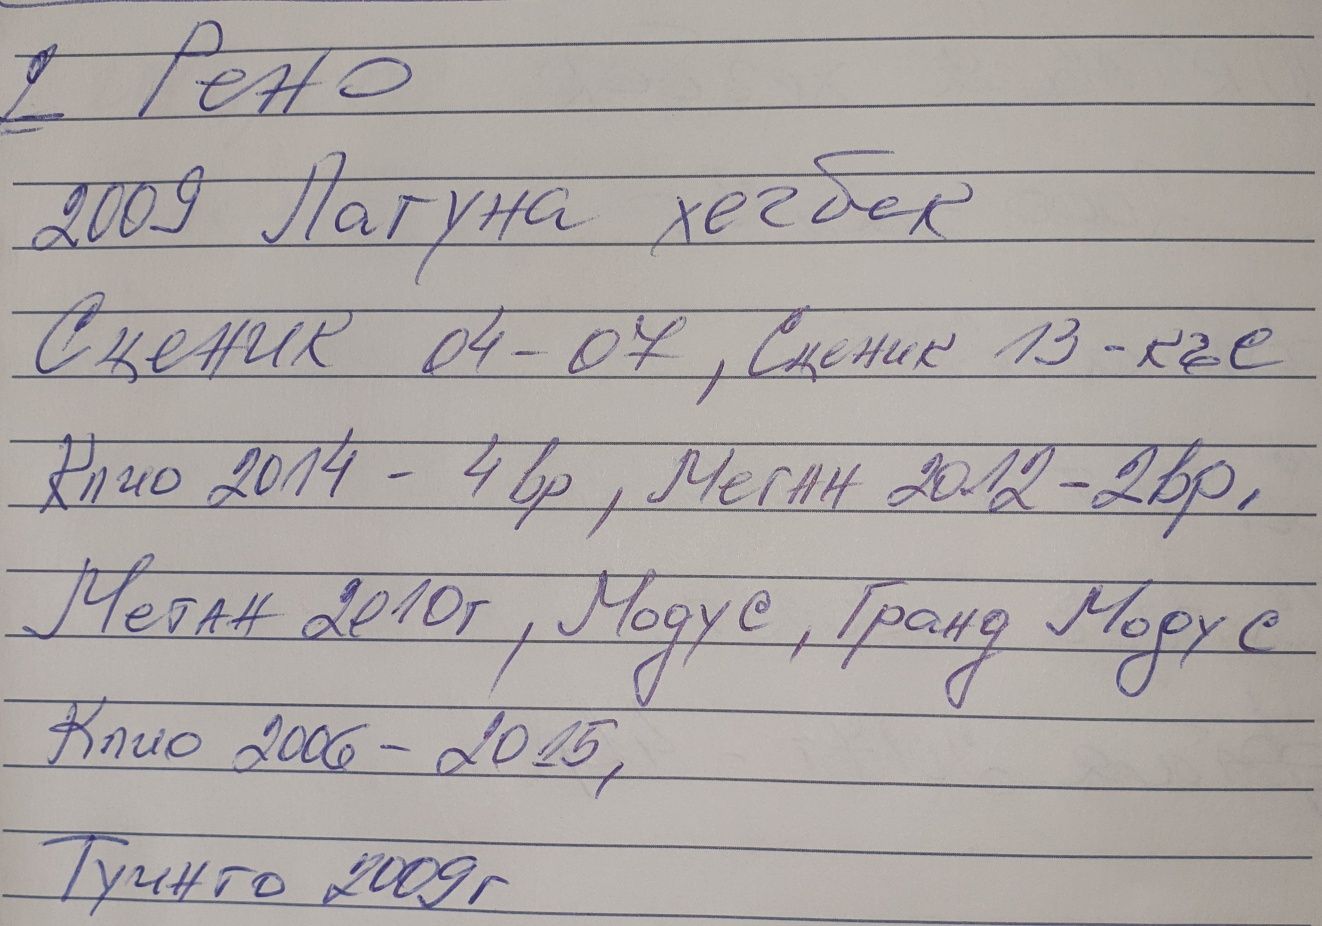 1 Рено
2009 Лагуна хегбек
Сценик 04-07, Сценик 13 - къс
Клио 2014 - 4вр, Меган 2012-2вр.
Меган 2010г, Модус, Гранд Модус
Клио 2006 - 2015,
Туинго 2009г